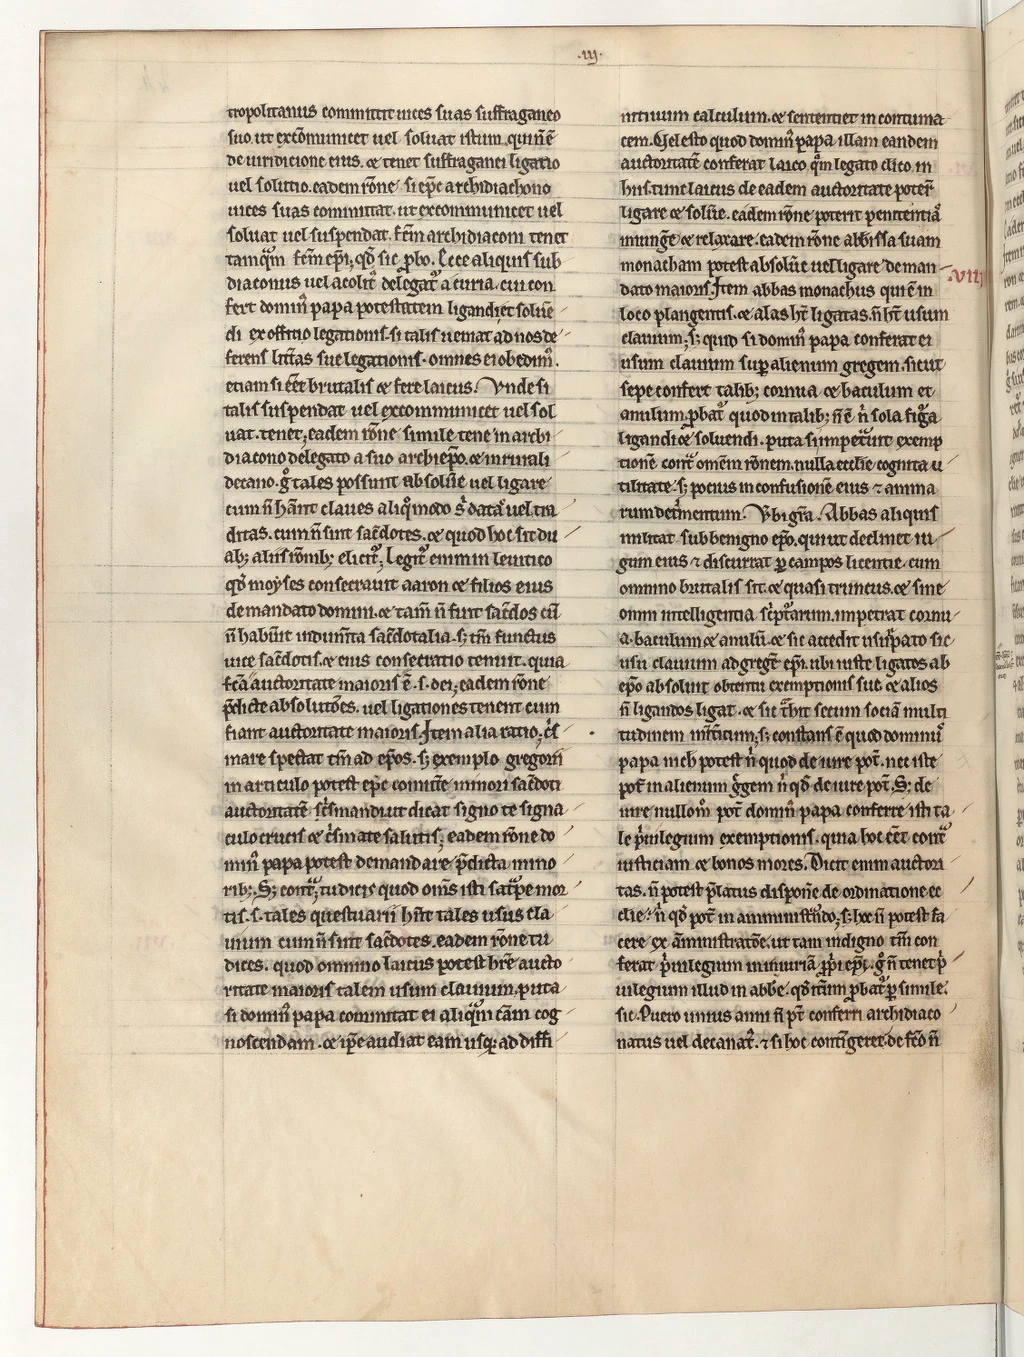 .iij.
tropolitanus committit uices suas suffraganeo
suo. ut excōmunicet uel soluat istum. qui n̄ ē
de iuridicione eius. ⁊ tenet suffraganei ligatio
uel solutio. eadem rōne si ep̄c archidiachono
uices suas committat. ut excommunicet uel
soluat uel suspendat. fc̄m archidiaconi tenet
tamqͣm fc̄m ep̄i. qd̄ sic ꝓbo. Ecce aliquis sub
diaconus uel acolit᷒ delegat᷒ a curia. cui con
fert domin᷒ papa potestatem ligandi et solue
di ex offitio legationis. si talis ueniat ad nos de
ferens litt̄as sue legationis. omnes ei obedim᷒.
etiam si eēt brutalis ⁊ fere laicus. Vnde si
talis suspendat uel excommunicet uel sol
uat. tenet. eadem rōne simile tene in archi
diacono delegato a suo archiep̄o. ⁊ in rurali
decano. gͦ tales possunt absolue uel ligare
cum n̄ habeant claues aliqͦ modo s᷑ datas uel tra
ditas. cum n̄ sint sac̄dotes. ⁊ quod hoc sit du
ab; aliis rōnib; elicit᷑. Legit᷑ enim in leuitico
qd̄ moyses consecrauit aaron ⁊ filios eius
de mandato domini. ⁊ tam̄ n̄ fuit sac̄dos cū
n̄ habuīt indum̄ta sac̄dotalia. s; tm̄ functus
uice sac̄dotis. ⁊ eius consecratio tenuit. quia
fc̄a auctoritate maioris ē. s. dei. eadem rōne
p̄dicte absolutōes. uel ligationes tenent cum
fiant auctoritate maioris. Item alia ratio. c̄s
mare spectat tm̄ ad ep̄os. s; exemplo gregorii
in articulo potest ep̄c comitte minori sac̄doti
auctoritatē c̄smandi. ut dicat signo te signa
culo crucis ⁊ c̄smate salutis. eadem rōne do
min᷒ papa potest demandare p̄dicta mino
rib;. S; cont͛. tu dicis quod om̄s isti
tis. s. tales questuarii hn̄t tales usus cla
uium cum n̄ sint sac̄dotes. eadem rōne tu
dices. quod omnino laicus potest hr̄e aucto
ritate maioris talem usum clauium. puta
si domin᷒ papa committat ei aliqͣm cām cog
noscendam. ⁊ ip̄e audiat eam usq; ad diffi
nitiuum calculum. ⁊ sententiet in contuma
cem. Vel esto quod domin᷒ papa illam eandem
auctoritatē conferat laico qͣm legato cl̄ico in
hiis. tunc laicus de eadem auctoritate poterit
ligare ⁊ solue. eadem rōne poterit penitentiā
iniunge ⁊ relaxare. eadem rōne abbissa suam
monacham potest absolue uel ligare de man
dato maioris. Item abbas monachus qui ē in .viij
loco plangentis. ⁊ alas h͛t ligatas. n̄ h͛t usum
clauium. s; quid si domin᷒ papa conferat ei
usum clauium sup alienum gregem. sicut
sepe confert talib; cornua ⁊ baculum et
anulum. ꝓbat᷑ quod in talib; n̄ ē n̄ sola figͣa
ligandi ⁊ soluendi. puta si impetͣuit exemp
tionē contͣ omēm rōnem. nulla ecclīe cognita u
tilitate. s; pocius in confusionē eius ⁊ anima
rum det͛mentum. Vbi grͣa. Abbas aliquis
militat sub benigno ep̄o. qui ut declinet iu
gum eius ⁊ discurrat ꝑ campos licentie. cum
omnino brutalis sit. ⁊ quasi truncus. ⁊ sine
omni intelligentia sc͛pt᷑arum. impetrat cornu
a. baculum ⁊ anulū. ⁊ sic accedit usurpato sic
usu clauium ad gregē ep̄i. ubi iuste ligatos ab
ep̄o absoluit obtentu exemptionis sue ⁊ alios
n̄ ligandos ligat. ⁊ sic tͣhit secum sociā multi
tudinem in infic̄tum. s; constans ē quod domin᷒
papa nich̄ potest n̄ quod de iure pōt. nec iste
pōt in alienum gͤgem n̄ qd̄ de iure pōt. S; de
iure nullom̄ pōt domin᷒ papa conferre isti ta
le p̄uilegium exemptionis. quia hoc eēt contͣ
iusticiam ⁊ bonos mores. Dicit enim auctori
tas. n̄ potest p̄latus dispone de ordinatione ec
clīe. n̄ qd̄ pōt in amministrādo. s; hoc n̄ potest fa
cere ex āministratōe. ut tam indigno tm̄ con
ferat p͛uilegium in iniuriā ꝓpͥi ep̄i. gͦ n̄ tenet p͛
uilegium illud in abbe. qd̄ it͛um ꝓbat᷑ ꝑ simile.
sic. Puero unius anni n̄ pōt conferri archidiaco
natus uel decanat᷒. ⁊ si hoc contigeret. de fc̄o n̄